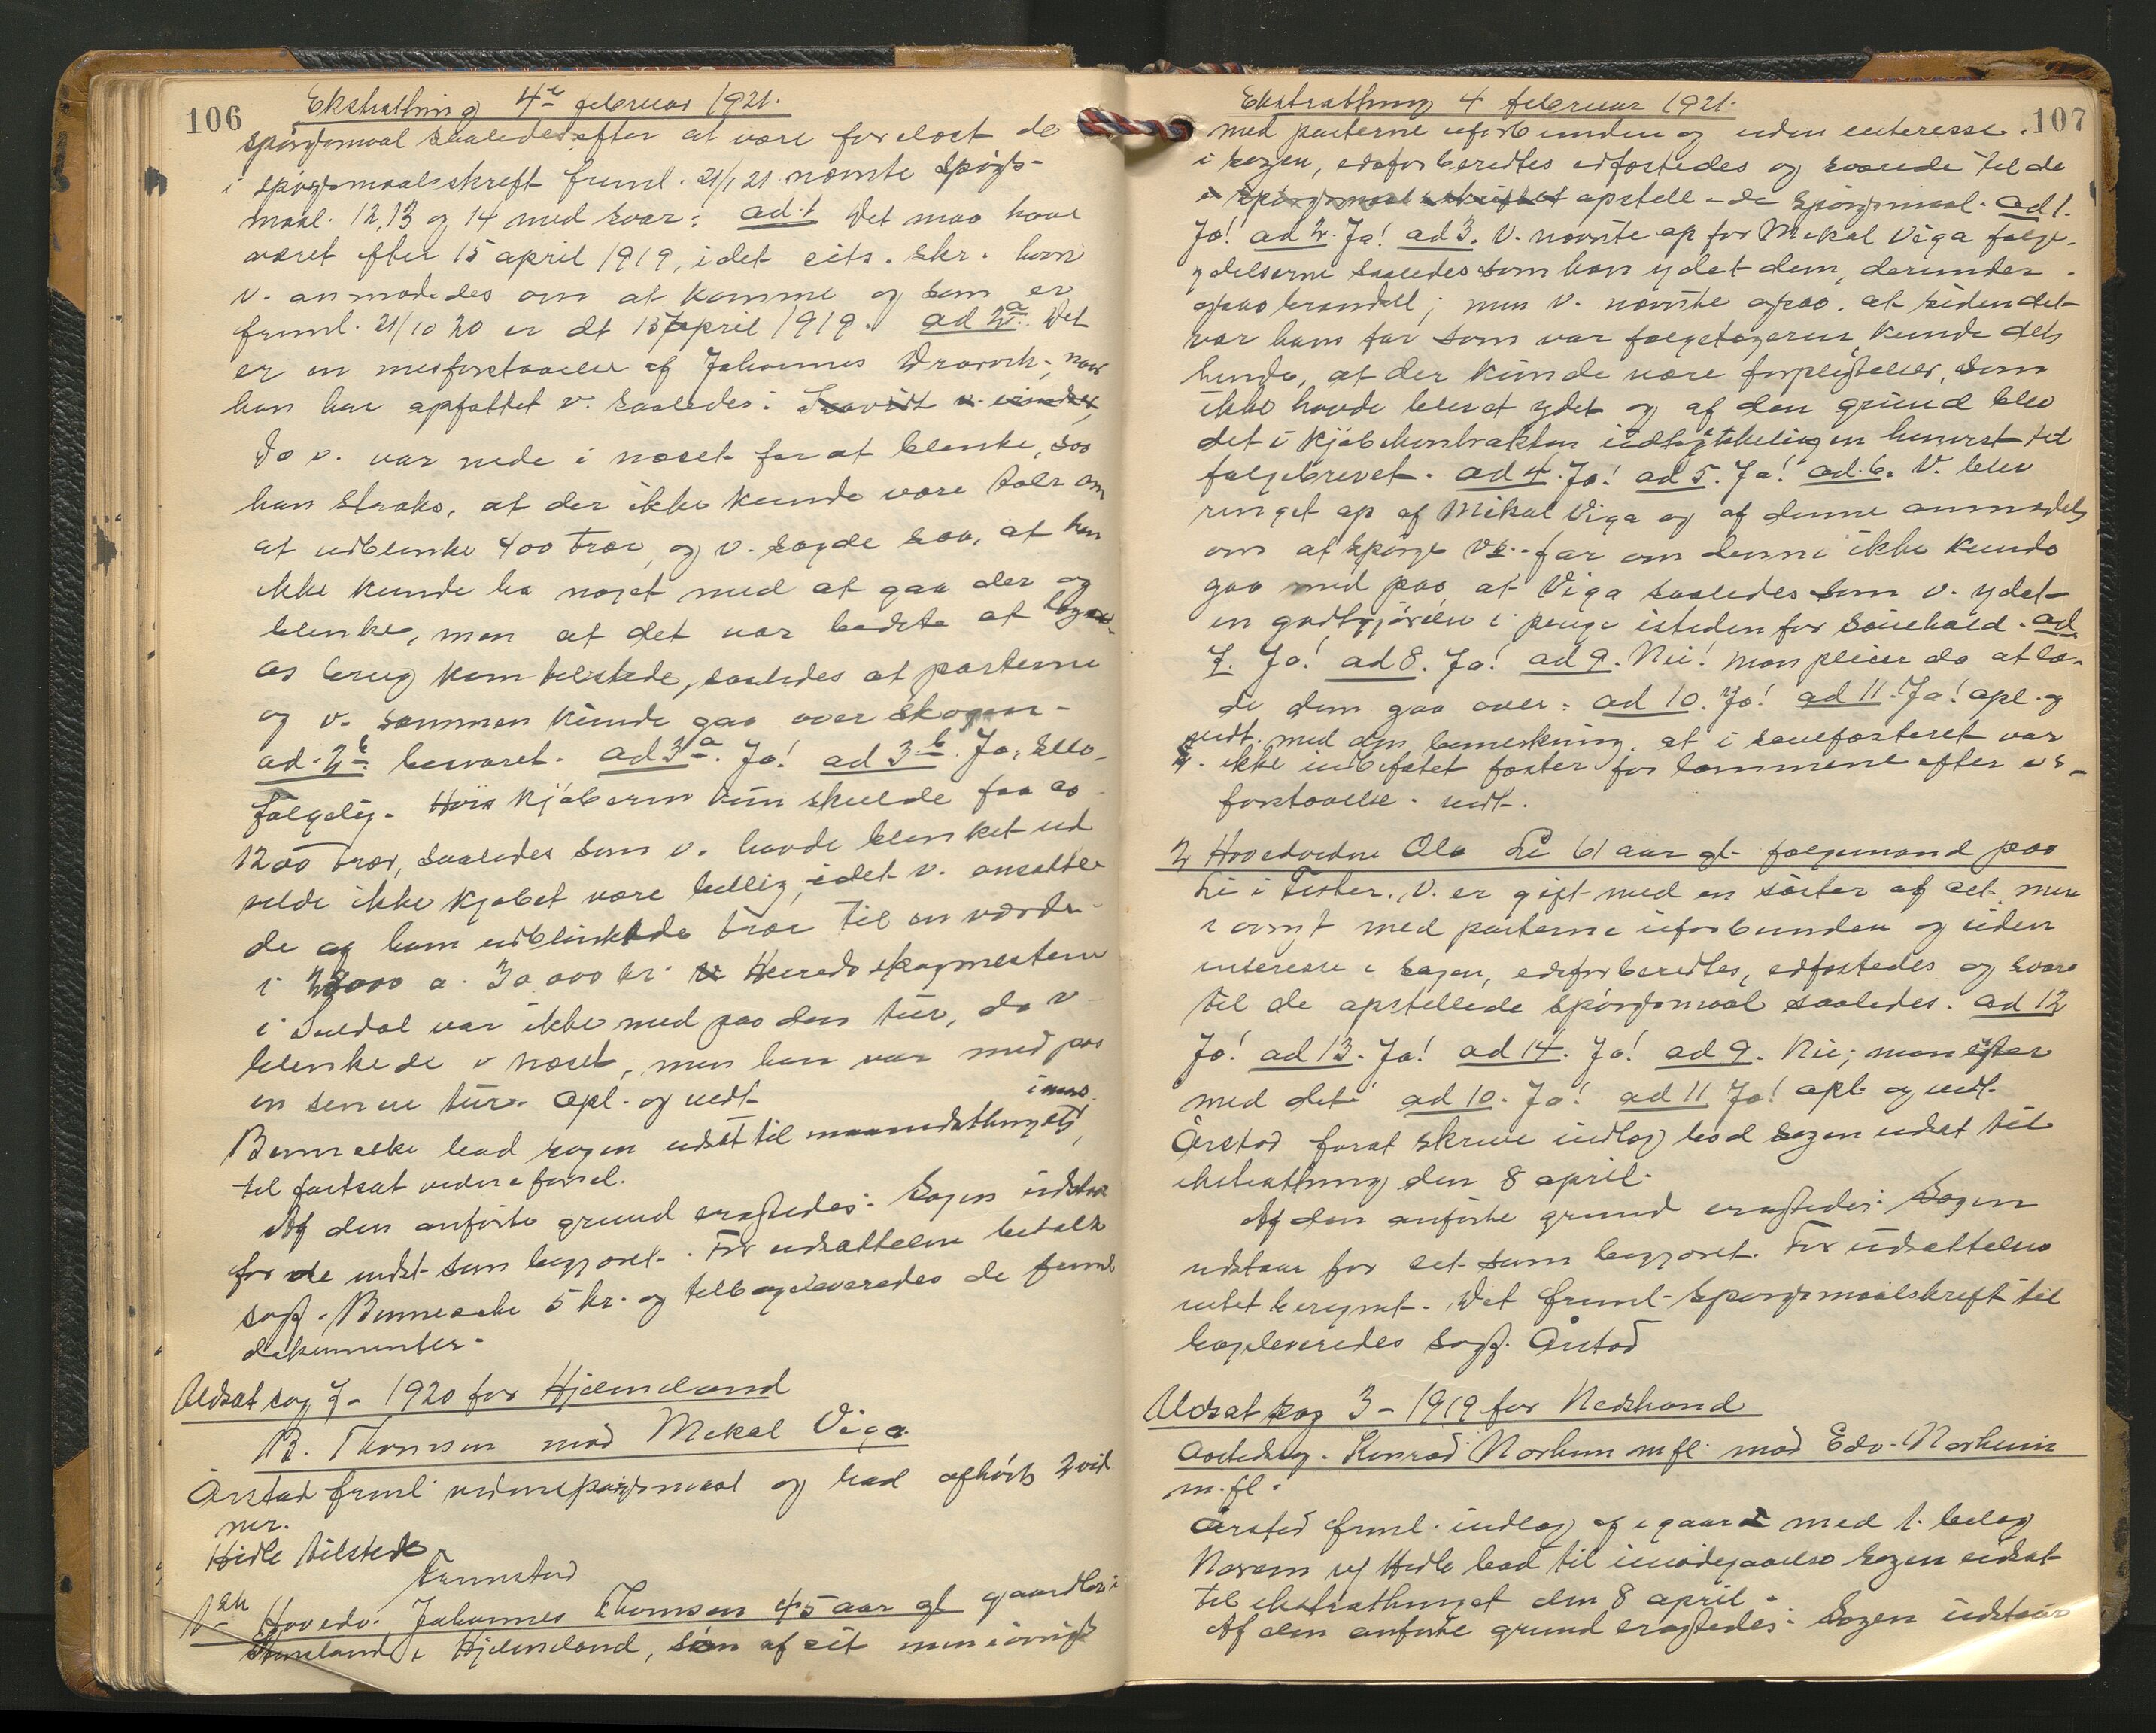 106
Ekstrathing 4de februar 1921.
spörgsmaal saaledes efter at være forelæst de
i spörgsmaalsskrift freml. 21/1 21 nævnte spörgs-
maal. 12, 13 og 14 med svar: ad. 1 Det maa have
været efter 15 april 1919, idet cits. skr. hvori
v. anmodedes om at komme og som er
freml. 21/10 20 er dt 15 april 1919. ad 2a. Det
er en misforstaaelse af Johannes naar
han har opfattet v. saaledes. Saavidt v. erindrer,
Da v. var nede i næset for at blinke, saa
han straks, at der ikke kunde være tale om
at udblinke 400 trær, og v. sagde saa, at han
ikke kunde ha noget med at gaa der og
blinke, men at det var bedste at
as brug kom tilstede, saaledes at parterne
og v. sammen kunde gaa over skogen-
ad. 2b. besvaret. ad 3a. Ja! ad 3b. Ja, selv-
fölgelig. Hvis kjöberen kun skulde faa ca
1200 trær, saaledes som v. havde blinket ud
vilde ikke kjöbet være billig, idet v. ansatte
de af ham udblinkede trær til en værdi
i 28000 a. 30,000 kr. Herredsskogmesteren
i Suldal var ikke med paa den tur, da v
blinkede i næset, men han var med paa
en senere tur. Opl. og vedt.
Bennecke bad sagen udsat til maanedsthinget i mars,
til fortsat vidneförsel.
Af den anförte grund eragtedes: Sagen udstaar
for de indst. som begjæret. For udsættelsen betalte
sagf. Bennecke 5 kr. og tilbageleveredes de freml
dokumenter.
Udsat sag 7 - 1920 for Hjelmeland
B. Thomsen mod Mikal Viga.
Årstad freml. vidnespörgsmaal og bad afhört 2 vid
ner.
Hidle tilstede.
Tunstad
1ste Hovedv. Johannes Thomsen 45 aar gl gaardbr i
Hjelmeland, sön af cit men iövrigt
107
Ekstrathing 4 februar 1921.
med parterne uforbunden og uden interesse.
i sagen, edsforberedtes edfæstedes og svarede til de
i spörgsmaalsskriftet opstill-de spörgsmaal. ad 1.
Ja! ad 2. Ja! ad 3. V. nævnte op for Mikal Viga følge-
ydelserne saaledes som han ydet dem, derunder
ogsaa brændsel; men v. nævnte ogsaa. at siden det
var hans far som var følgetageren, kunde det
hende, at der kunde være forpligtelser, som
ikke havde blevet ydet og af den grund blev
det i kjöbekontrakten udtrykkelig en henvist til
følgebrevet. ad 4. Ja! ad 5. Ja! ad. 6. V. blev
ringet op af Mikal Viga og af denne anmodet
om at spörge vs.-far om denne ikke kunde
gaa med paa at Viga saaledes som v. ydet
en godtgjörelse i penge istedenfor sauehold. ad
7. Ja! ad 8. Ja! ad 9. Nei! man pleier da at la-
de dem gaa over. ad 10. Ja! ad 11. Ja! opl. og
vedt. med den bemerkning. at i sauefosteret var
ikke indbefatet foster for lammene efter vs.
forstaaelse. vedt.
2 Hovedvidne Ola Li 61 aar gl. følgemand paa
Li i Fister. V. er gift med en söster af cit. men
iövrigt med parterne uforbunden og uden
interesse i sagen, edsforberedtes, edfæstedes og svare
til de opstillede spörgsmaal saaledes. ad 12
Ja! ad 13. Ja! ad 14. Ja! ad 9. Nei; man
med det. ad 10. Ja! ad 11 Ja! opl. og vedt.
Årstad forat skrive indlæg bad sagen udsat til
ekstrathing den 8 april.
Af den anförte grund eragtedes: Sagen
udstaar for cit som begjæret. For udsættelse
intet beregnet. Det freml. spörgsmaalskrift til
bageleveredes sagf. Årstad
Udsat sag 3 - 1919 for Nedstrand
Aastedsag. Konrad Norheim m.fl. mod Edv. Norheim
m.fl.
Årstad freml. indlæg af igaar med 1. bilag
v/ Hidle bad til imödegaaelse sagen udsat
til ekstrathinget den 8 april.
Af den anförte grund eragtedes: Sagen udstaar